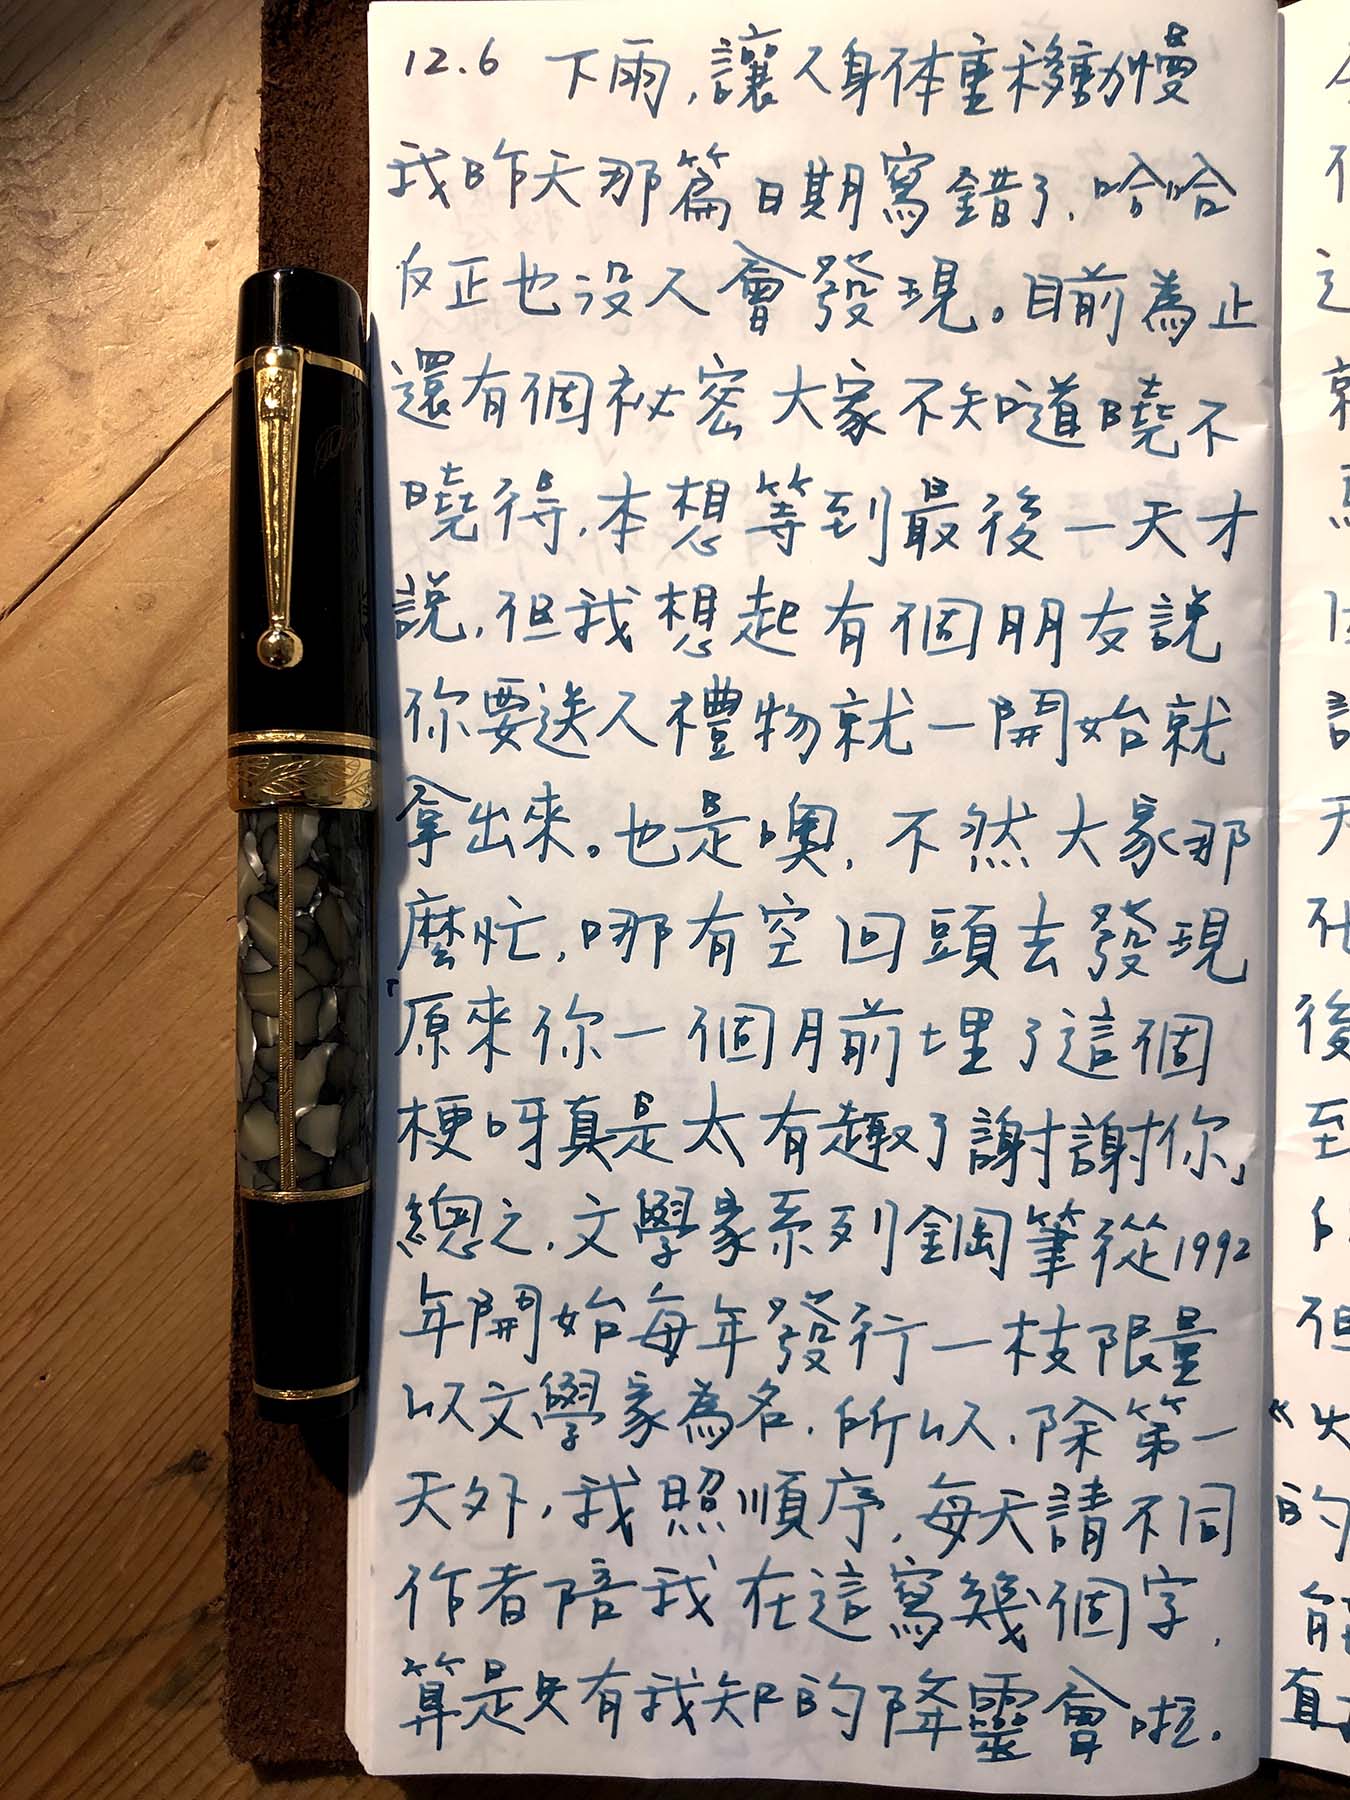 12.6 下雨,讓人身体重移動慢
我昨天那篇日期寫錯了,哈哈
反正也沒人會發現。目前為止
還有個祕密大家不知道曉不
曉得,本想等到最後一天才
說,但我想起有個朋友說
你要送人禮物就一開始就
拿出來。也是噢,不然大家那
麼忙,哪有空回頭去發現
「原來你一個月前埋了這個
梗呀真是太有趣了謝謝你」
總之,文學家系列鋼筆從1992
年開始每年發行一枝限量
以文學家為名,所以,除第一
天外,我照順序,每天請不同
作者陪我在這寫幾個字,
算是只有我知的降靈會啦.